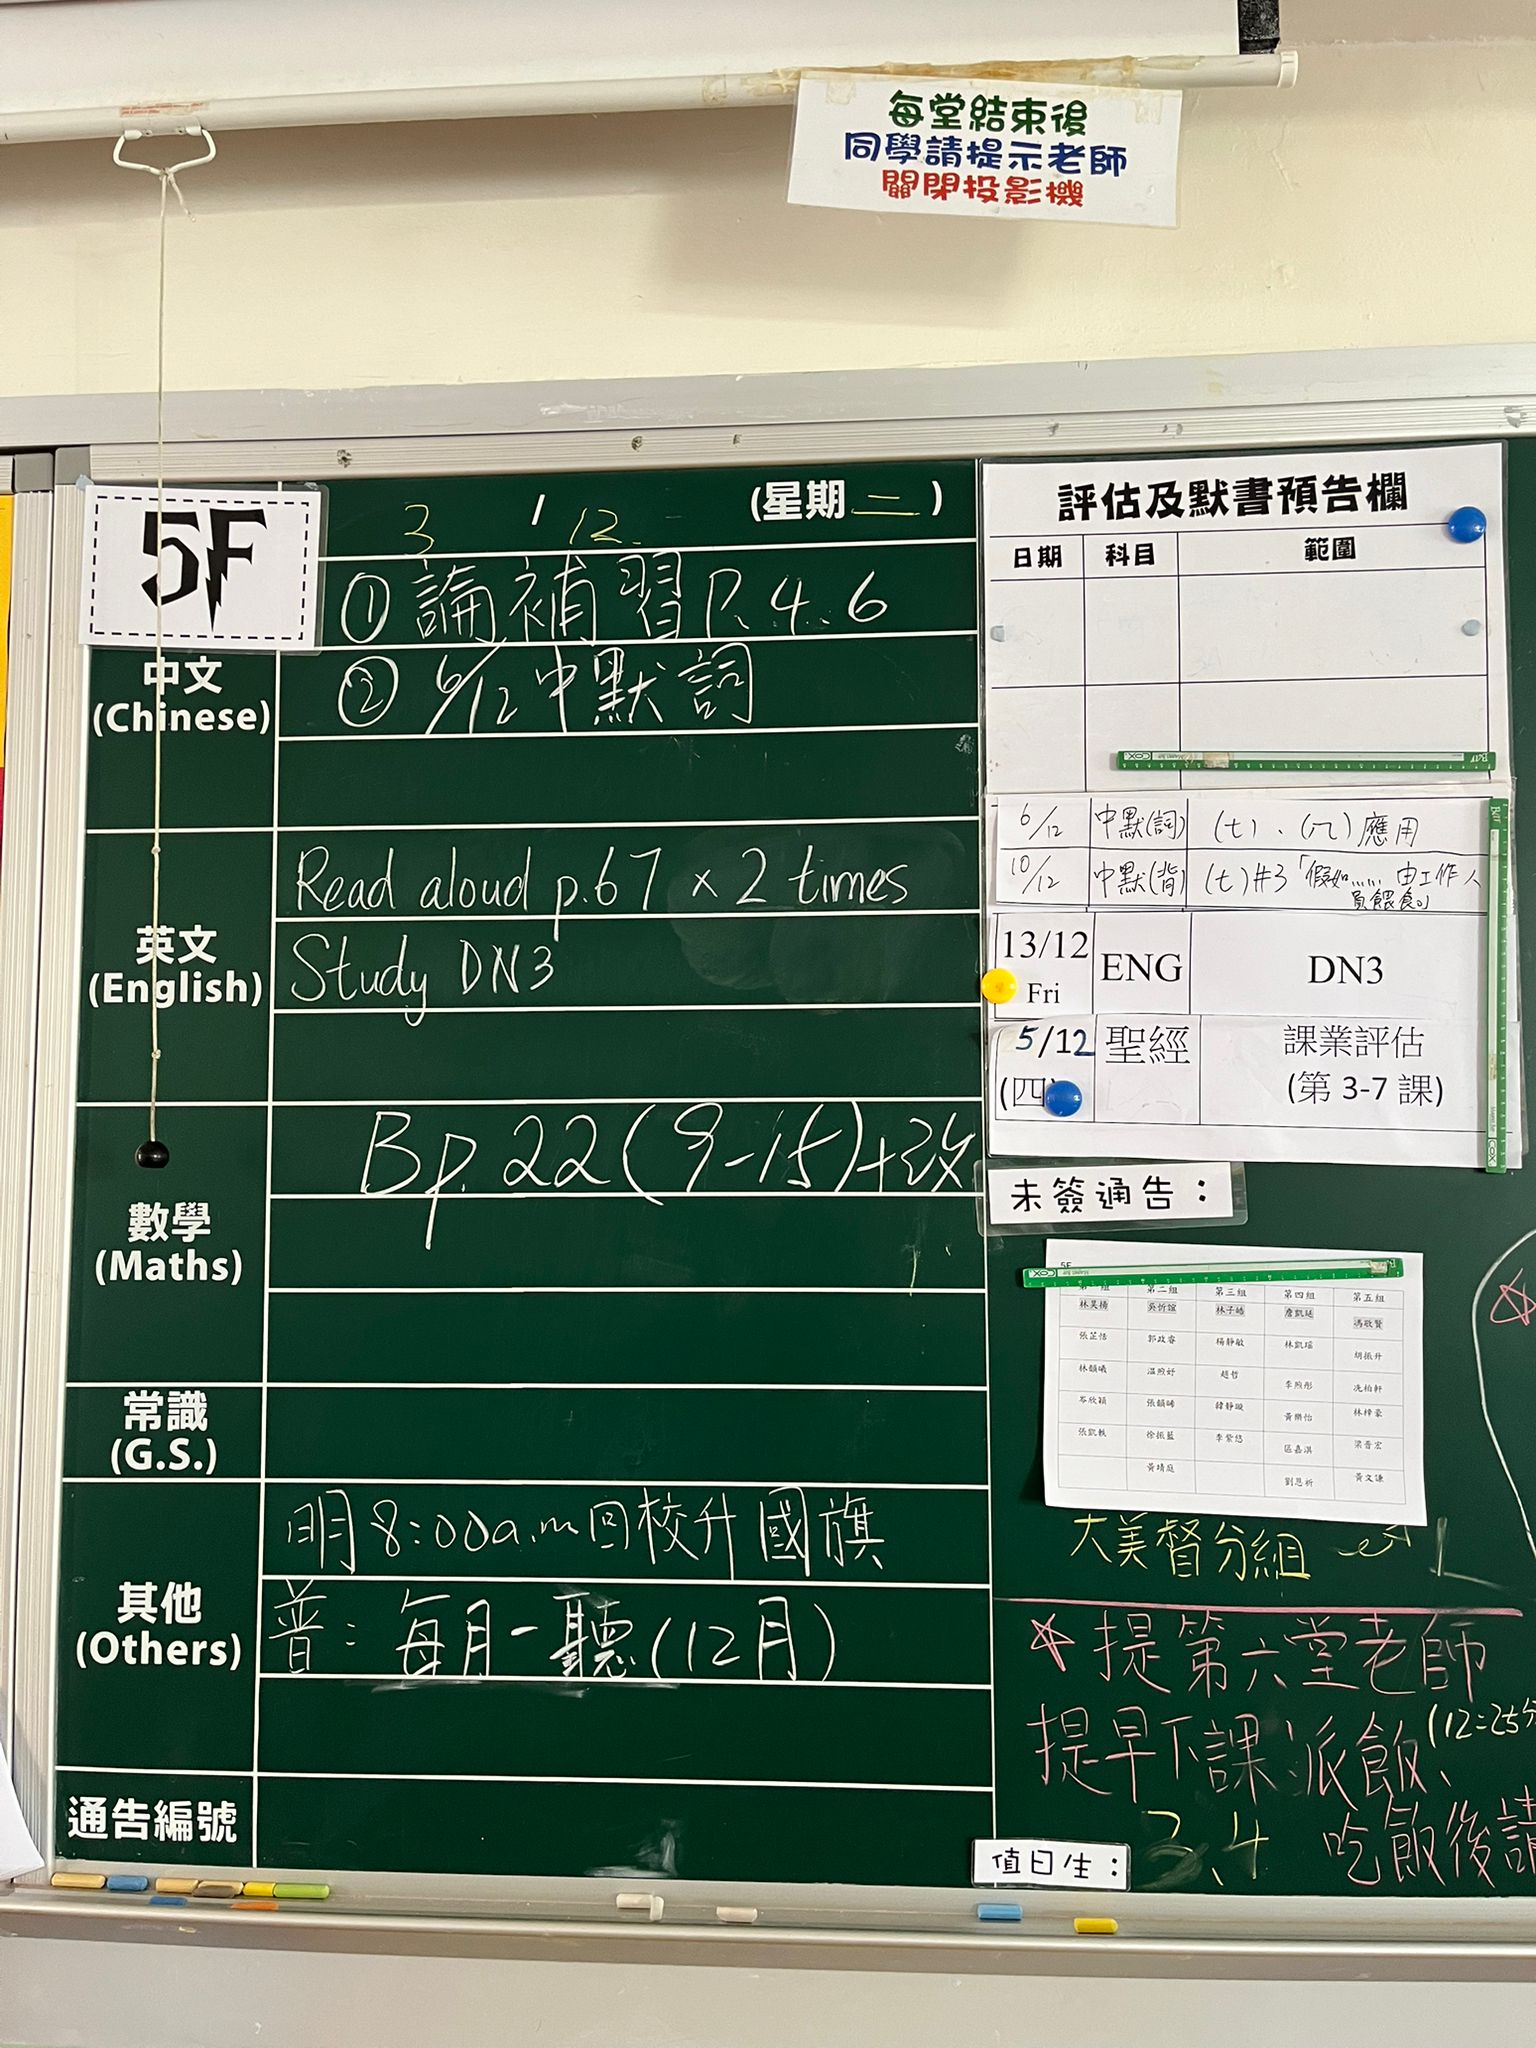 每堂結束後
同學請提示老師
關閉投影機
5F
3 / 12 (星期 二 )
中文
(Chinese)
① 論補習 P.4.6
② 6/12 中默詞
英文
(English)
Read aloud p.67 × 2 times
Study DN3
數學
(Maths)
Bp.22(9-15)+改
常識
(G.S.)
其他
(Others)
明8:00a.m回校升國旗
普: 每月一聽(12月)
通告編號
評估及默書預告欄
日期 科目 範圍
6/12 中默(詞) (七)、(八)應用
10/12 中默(背) (七)#3「假如…… 由工作人
員餵食。」
13/12 ENG DN3
Fri
5/12 聖經 課業評估
(四) (第 3-7 課)
未簽通告:
5F
第二組 第三組 第四組 第五組
林子皓 馮敬賢
郭政睿 楊靜敏 林凱瑶 胡振升
趙哲 李煦彤 冼柏軒
岑欣穎 黃樂怡 林梓豪
徐振藍 李紫悠 區嘉淇 梁晉宏
黃靖庭 劉恩祈 黃文謙
大美督分組
☆提第六堂老師
提早下課派飯、
(12:25分
值日生: 3.4
吃飯後請